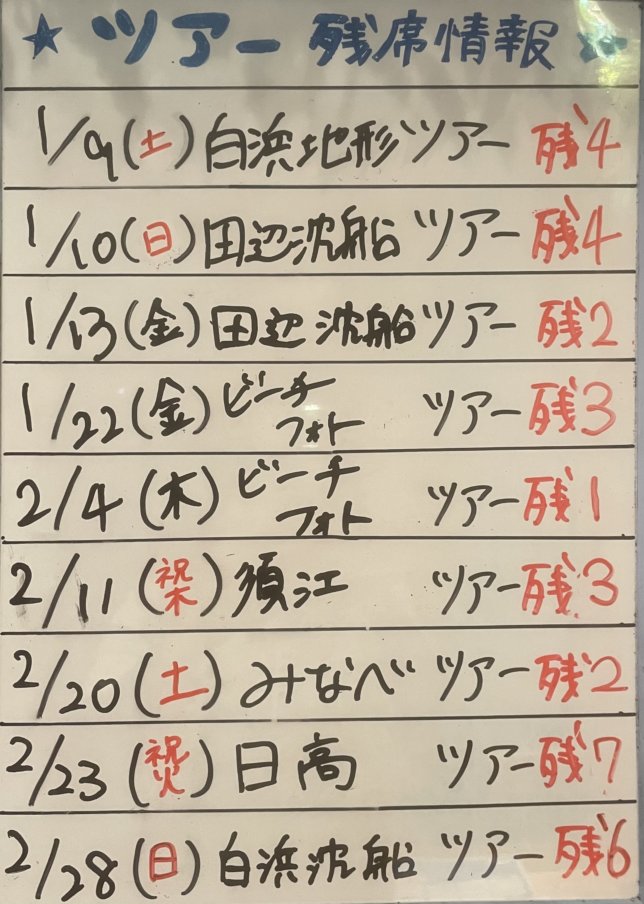 ★ ツアー 残席情報 ☆
1/9(土)白浜地形ツアー 残4
1/10(日)田辺沈船ツアー 残4
1/13(金)田辺沈船ツアー 残2
1/22(金)ビーチフォトツアー 残3
2/4(木)ビーチフォトツアー 残1
2/11(祝木)須江ツアー 残3
2/20(土)みなべツアー 残2
2/23(祝火)日高ツアー 残7
2/28(日)白浜沈船ツアー 残6